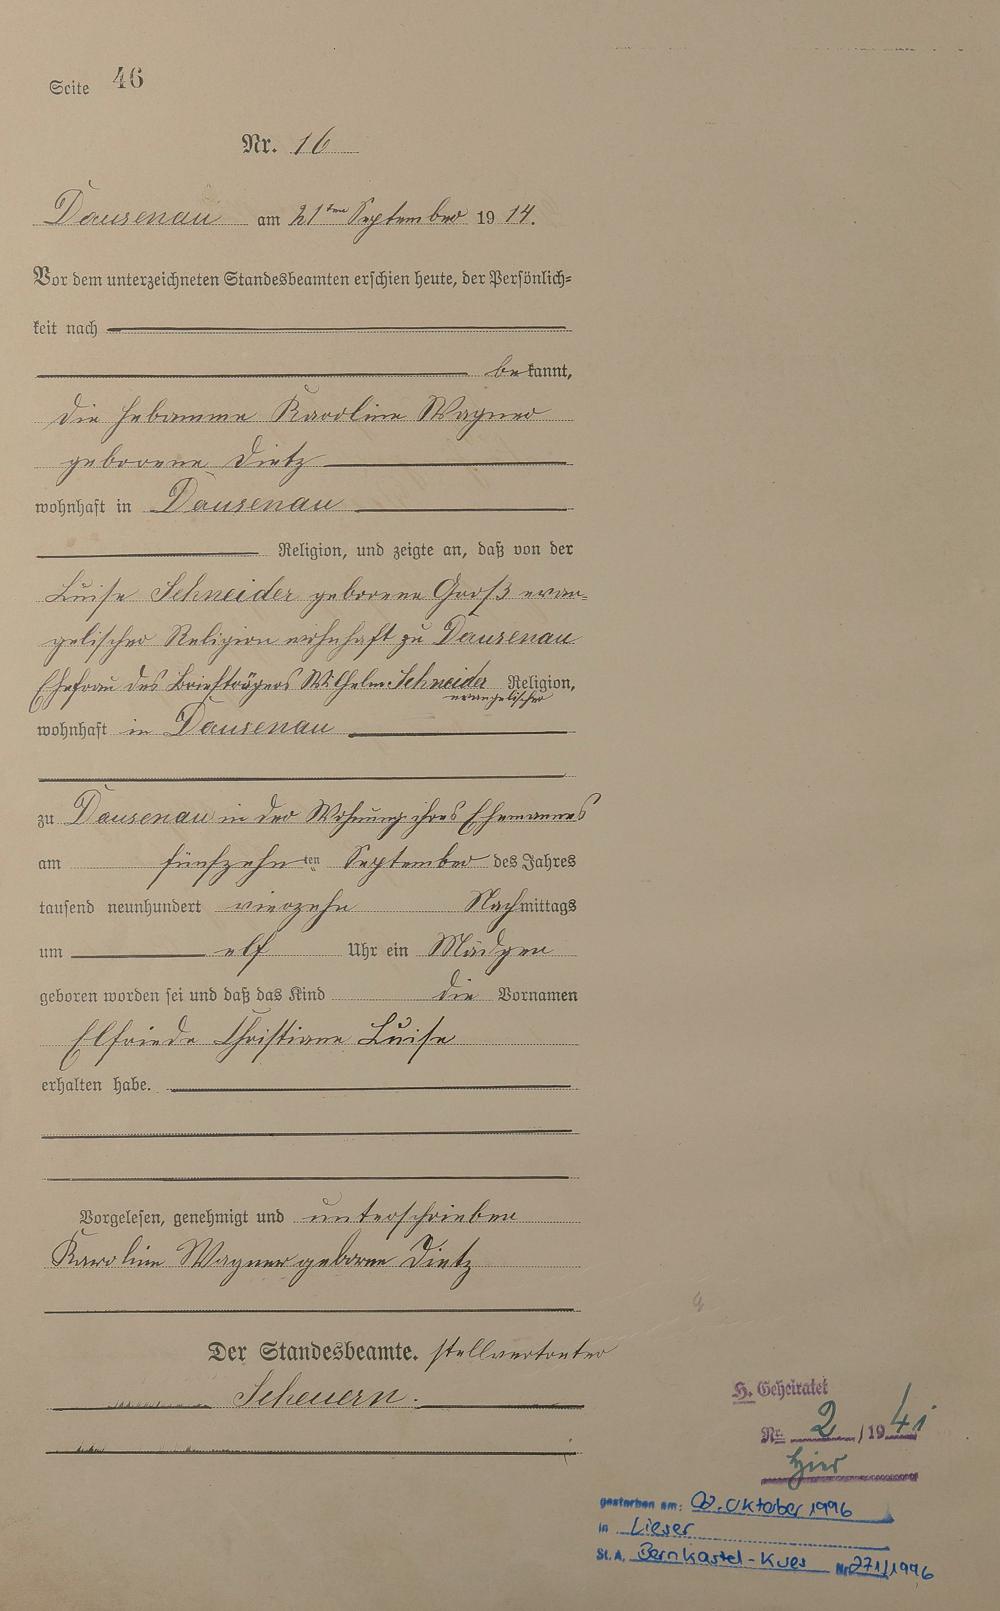 Seite 46
Nr. 16
Dausenau am 21ten September 1914.
Vor dem unterzeichneten Standesbeamten erschien heute, der Persönlich-
keit nach
bekannt,
die Hebamme Karoline Wagner
geborene Dietz
wohnhaft in Dausenau
Religion, und zeigte an, daß von der
Luise Schneider geborene Groß evan-
gelischer Religion wohnhaft zu Dausenau
Ehefrau des Briefträgers Wilhelm Schneider Religion,
evangelischer
wohnhaft in Dausenau
zu Dausenau in der Wohnung ihres Ehemannes
am fünfzehnten September des Jahres
tausend neunhundert vierzehn Nachmittags
um elf Uhr ein Mädgen
geboren worden sei und daß das Kind die Vornamen
Elfriede Christiane Luise
erhalten habe.
Vorgelesen, genehmigt und unterschrieben
Karoline Wagner geborne Dietz
Der Standesbeamte. stellvertreter
Scheuern.
H. Geheiratet
Nr. 2/1941
hier
gestorben am: 02. Oktober 1996
in Lieser
St.A. Bernkastel-Kues Nr 271/1996